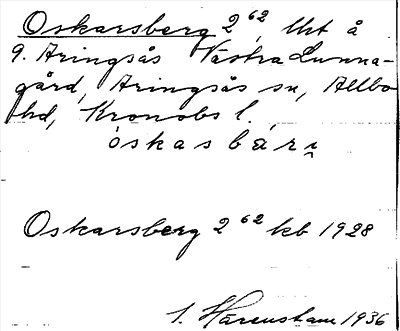 Oskarsberg 2⁶², lht å
9. Aringsås Västra Lunna-
gård, Aringsås sn, Allbo
hd, Kronobs l.
òskasbárɳ
Oskarsberg 2⁶² kb 1928
1936